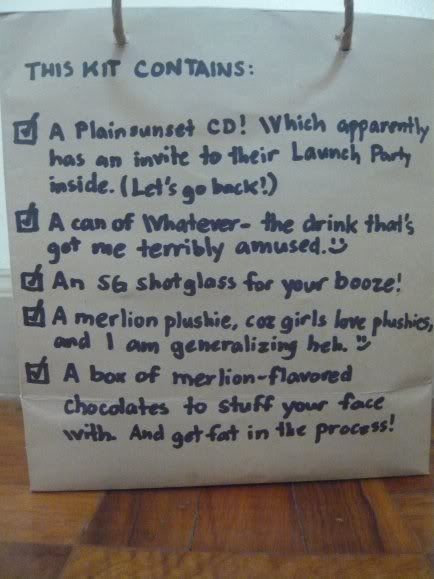 THIS KIT CONTAINS:
A Plainsunset CD! Which apparently
has an invite to their Launch Party
inside. (Let's go back!)
A can of Whatever- the drink that's
got me terribly amused.
An SG shotglass for your booze!
A merlion plushie, coz girls love plushies,
and I am generalizing heh.
A box of merlion-flavored
chocolates to stuff your face
with. And get fat in the process!